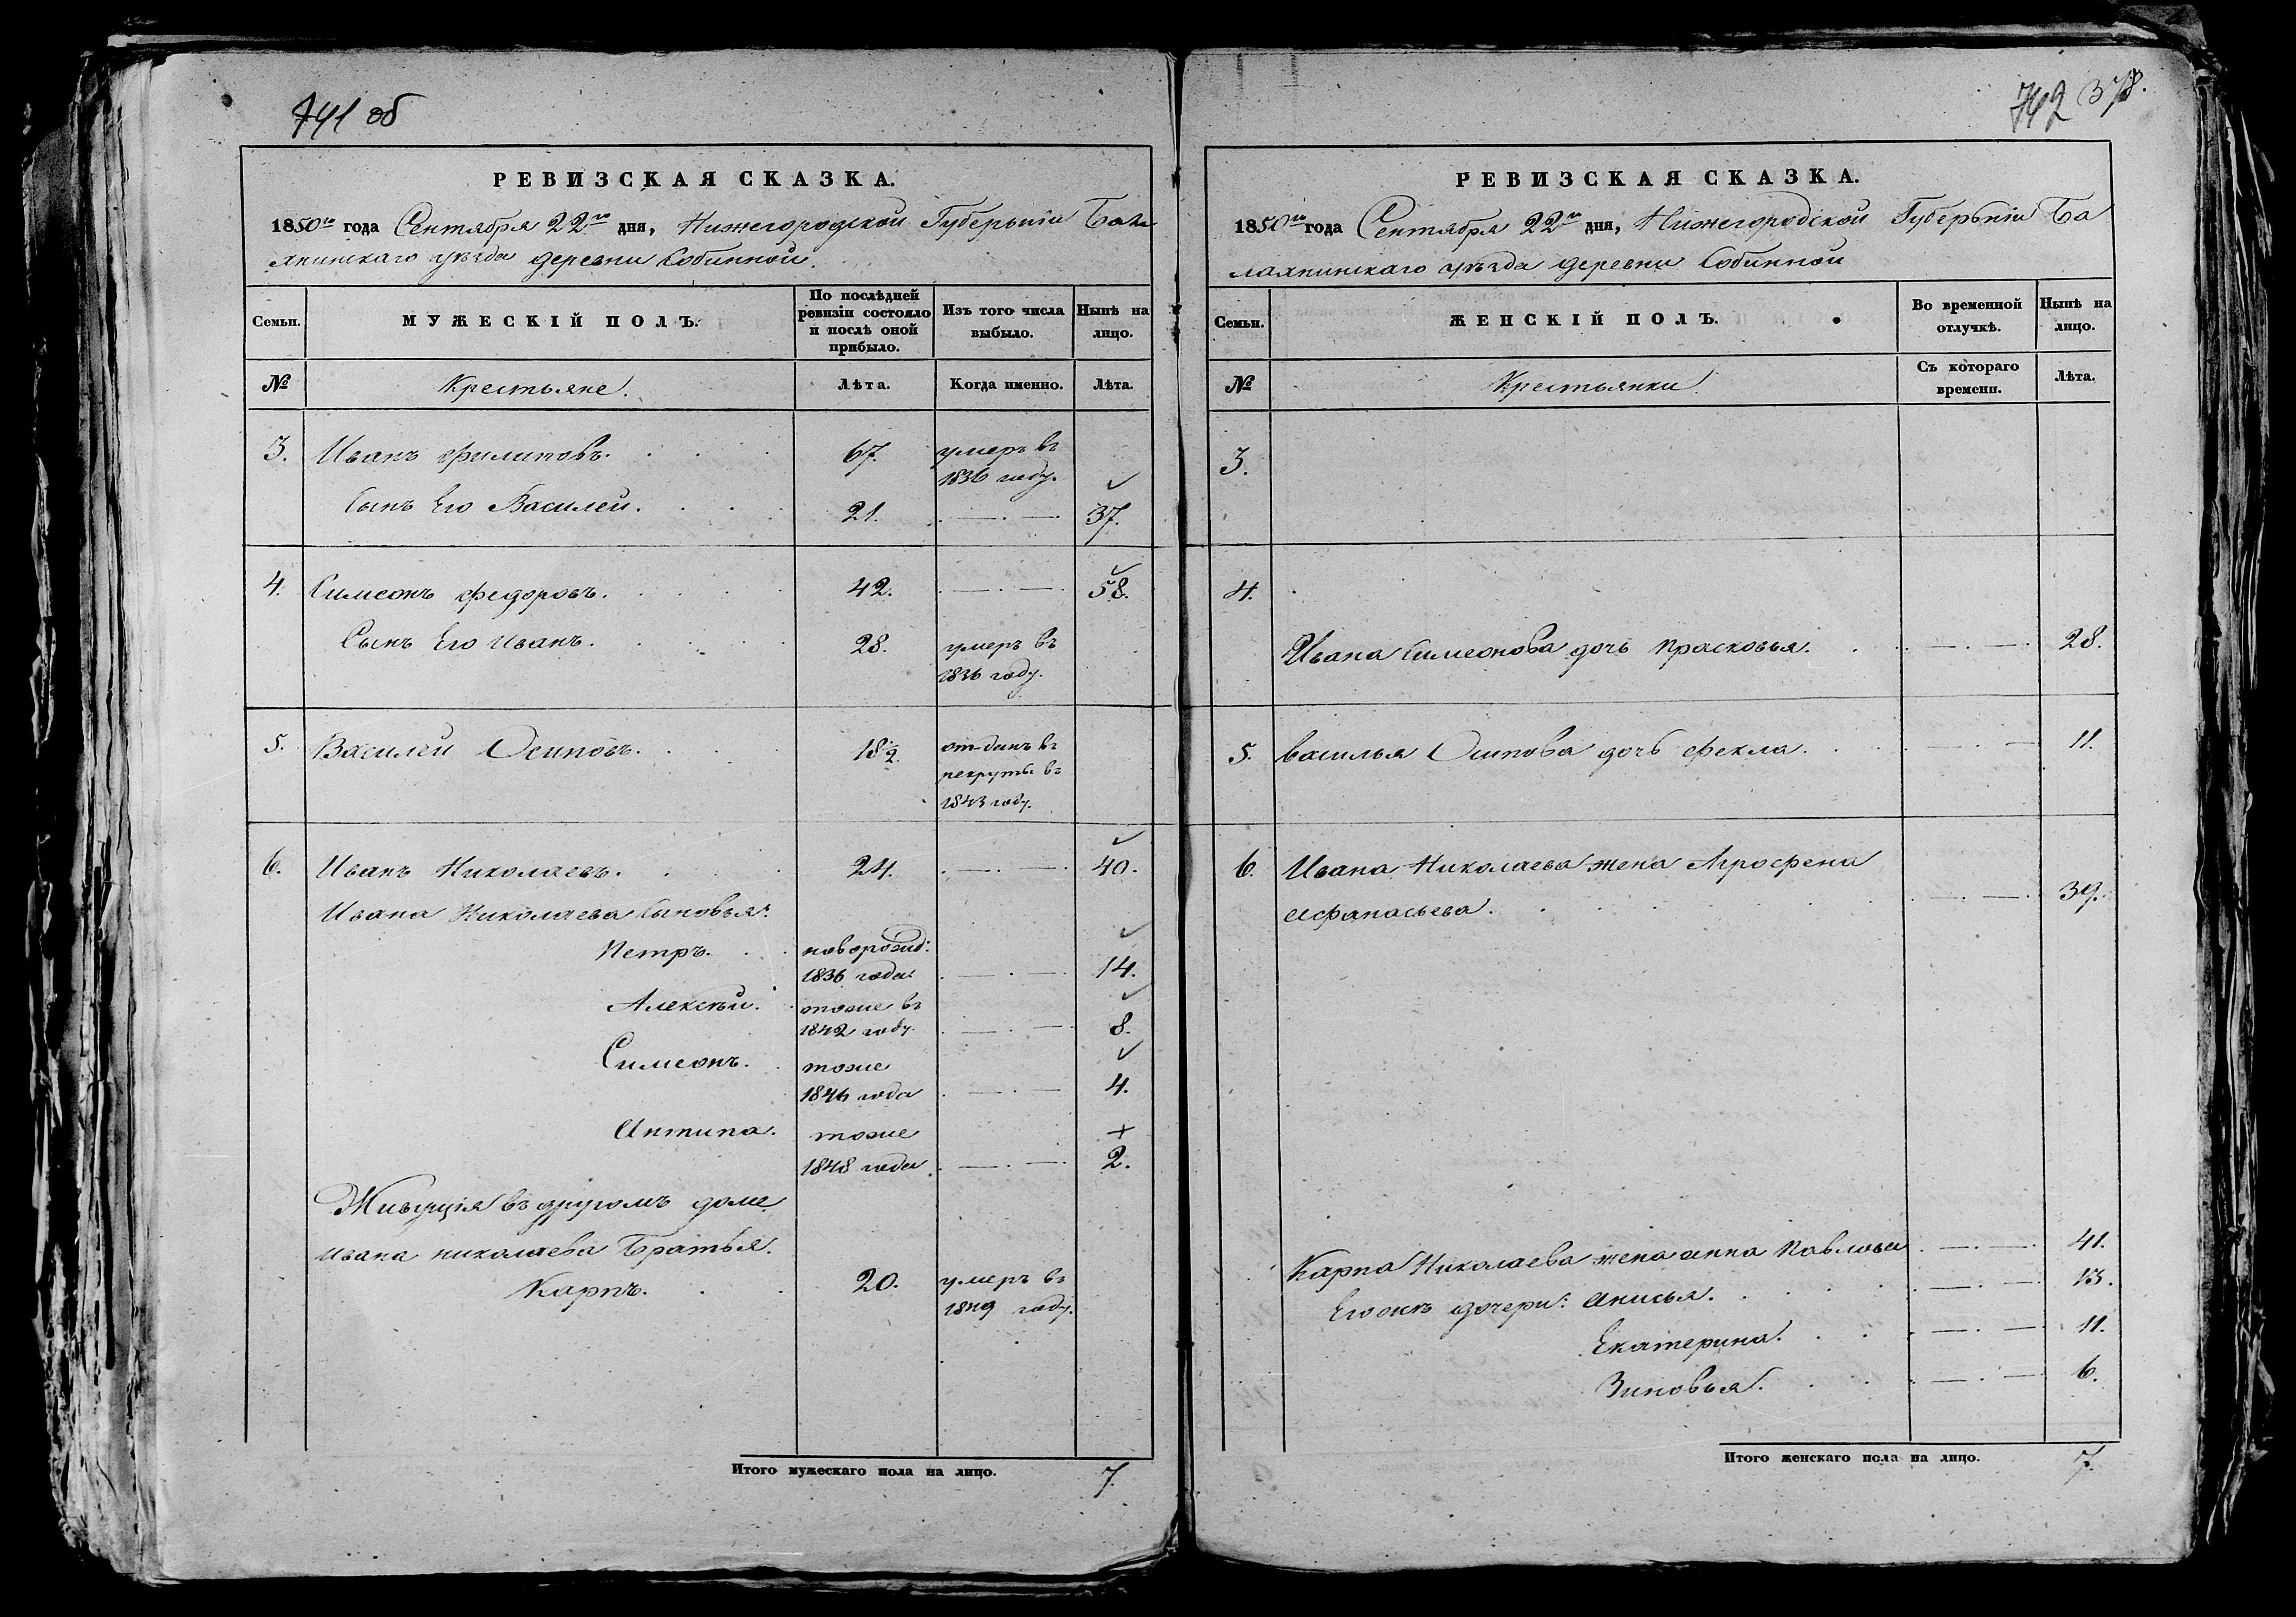 741 об
РЕВИЗСКАЯ СКАЗКА.
1850го года Сентября 22го дня, Нижегородской Губерьнiи Бала
хнинскаго уѣзда деревни Собинной.
Семьи.
МУЖЕСКІЙ ПОЛЪ.
По послѣдней ревизіи состояло и послѣ оной прибыло.
Изъ того числа выбыло.
Нынѣ на лицо.
№
Крестьяне.
Лѣта.
Когда именно.
Лѣта.
3. Иванъ Филиповъ. 67. умеръ въ
1836 году.
Сынъ Его Василей. 21. 37.
4. Симеонъ Федоровъ. 42. 58.
Сынъ Его Иванъ. 28. умеръ въ
1836 году.
5. Василей Осиповъ. 18 1/2. отданъ в
рекруты въ
1843 году.
6. Иванъ Николаевъ. 24. 40.
Ивана Николаева Сыновья:
Петръ. новорожд:
1836 года 14.
Алексѣй. тоже въ
1842 году. 8.
Симеонъ. тоже
1846 года 4.
Антипа. тоже
1848 года 2.
Живущiя въ другомъ доме
Ивана николаева Братья.
Карпъ. 20. умеръ въ
1849 году.
Итого мужескаго пола на лицо. 7.
742 378.
РЕВИЗСКАЯ СКАЗКА.
1850го года Сентября 22го дня, Нижегородской Губерьнiи Ба
лахнинскаго уѣзда деревни Собинной
Семьи.
ЖЕНСКІЙ ПОЛЪ.
Во временной отлучкѣ.
Нынѣ на лицо.
№
Крестьянки.
Съ котораго времени.
Лѣта.
3.
4.
Ивана Симеонова дочь Прасковья. 28.
5. василья Осипова дочь Фекла. 11.
6. Ивана Николаева жена Агрофена
Афанасьева. 39.
Карпа Николаева жена анна Павлова 41.
Его онъ дочери: анисья. 13.
Екатерина. 11.
Зиновья. 6.
Итого женскаго пола на лицо. 7.